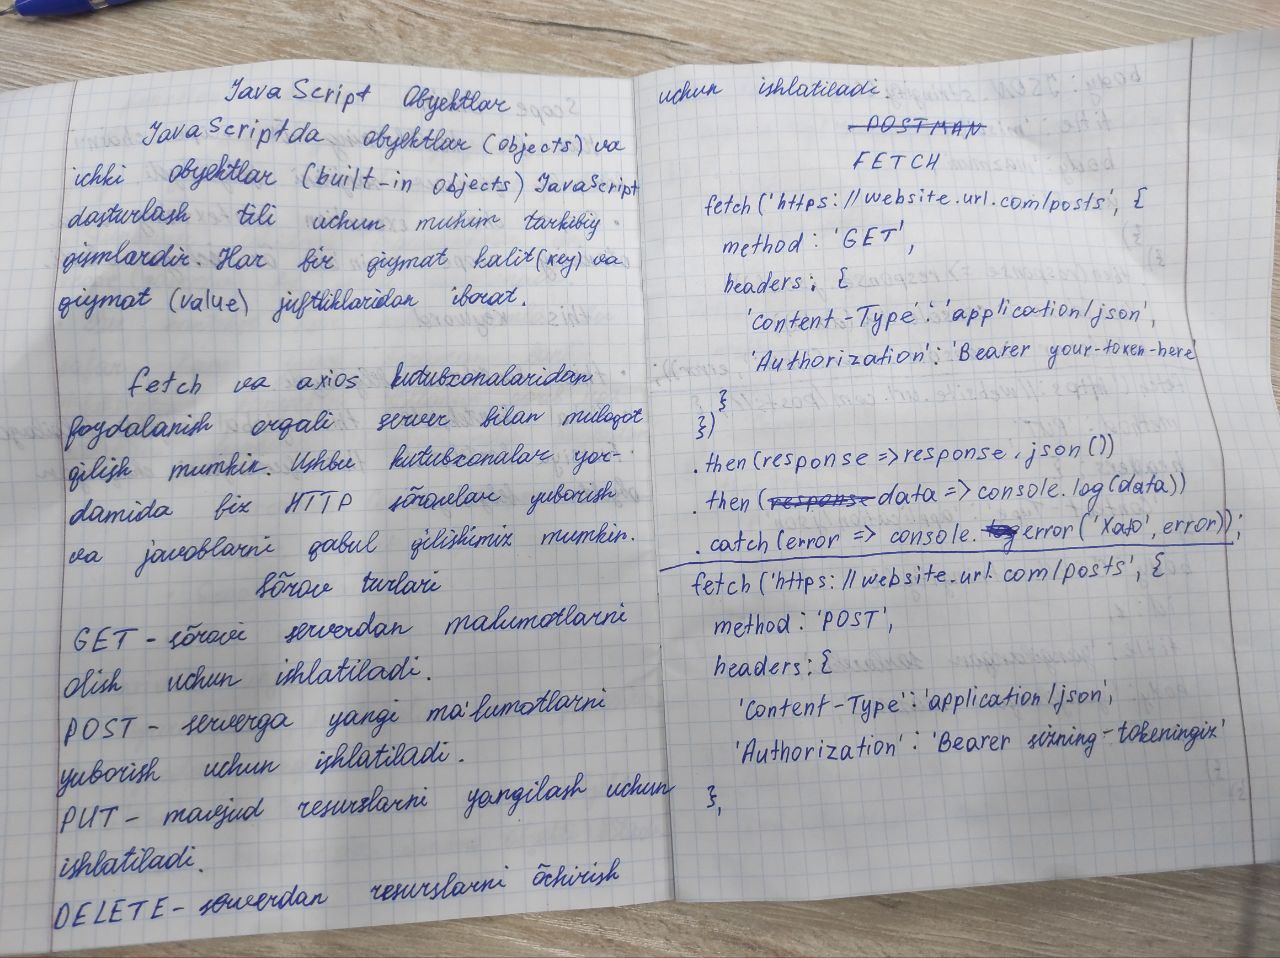 JavaScript Obyektlar
JavaScriptda obyektlar (objects) va
ichki obyektlar (built-in objects) JavaScript
dasturlash tili uchun muhim tarkibiy
qismlardir. Har bir qiymat kalit (key) va
qiymat (value) juftliklaridan iborat.
fetch va axios kutubxonalaridan
foydalanish orqali server bilan muloqot
qilish mumkin. Ushbu kutubxonalar yor-
damida biz HTTP sõrovlar yuborish
va javoblarni qabul qilishimiz mumkin.
Sõrov turlari
GET - sõrovi serverdan malumotlarni
olish uchun ishlatiladi.
POST - serverga yangi ma'lumotlarni
yuborish uchun ishlatiladi.
PUT - mavjud resurslarni yangilash uchun
ishlatiladi.
DELETE - serverdan resurslarni õchirish
uchun ishlatiladi
POSTMAN
FETCH
fetch('https://website.url.com/posts', {
method: 'GET',
headers: {
'Content-Type': 'application/json',
'Authorization': 'Bearer your-token-here'
}
})
.then(response => response.json())
.then(response data => console.log(data))
.catch(error => console.log error('Xato', error));
fetch('https://website.url.com/posts', {
method: 'POST',
headers: {
'Content-Type': 'application/json',
'Authorization': 'Bearer sizning-tokeningiz'
},